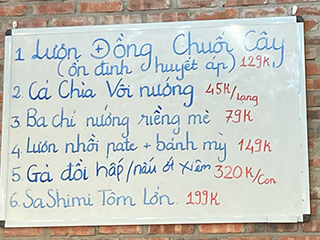 1 Lươn Đồng Chuối Cây
(ổn định huyết áp) 129K
2 Cá Chìa Vôi nướng 45K/Lạng
3 Ba chỉ nướng riềng mẻ 79K
4 Lươn nhồi pate + bánh mỳ 149K
5 Gà đồi hấp/nấu ớt xiêm 320K/Con
6. SaShimi Tôm Lớn. 199K